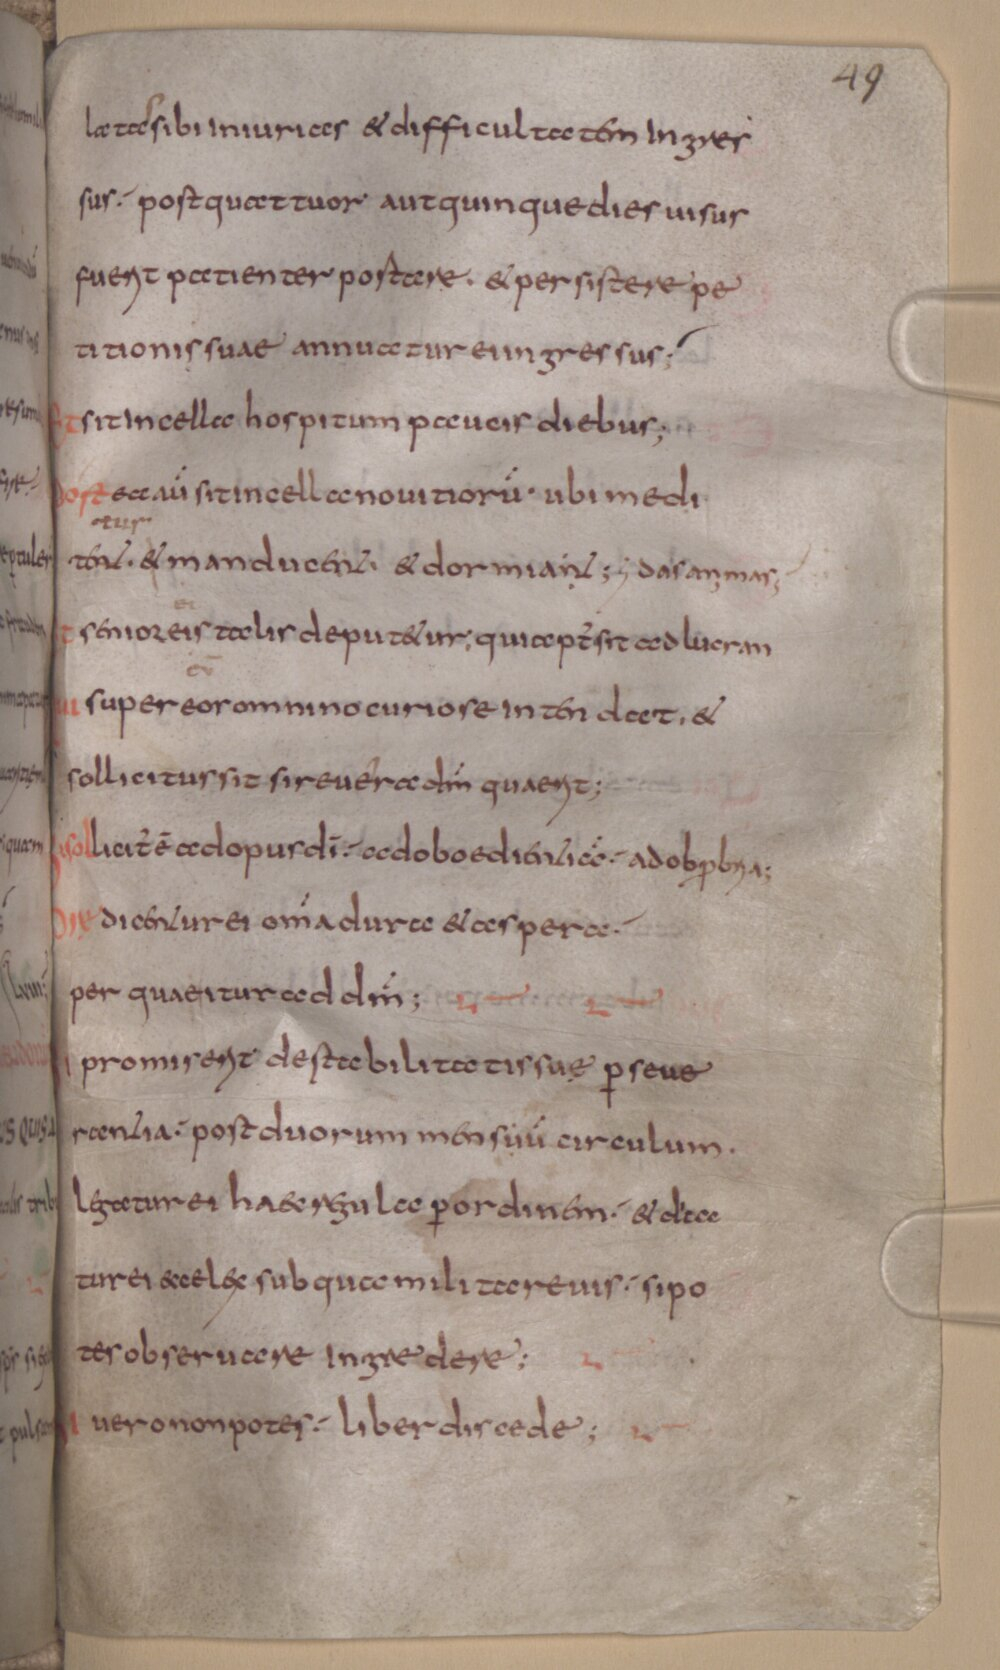 49
latas sibi iniurias & difficultatem ingres
sus. post quattuor aut quinque dies uisus
fuerit patienter postare. & persistere pe
titionis suae annuatur ei ingressus;
Et sit in cella hospitum paucis diebus;
Post ea aū sit in cella nouitiorū. ubi medi
atur
tent. & manducent. & dormiant;
et senior eis talis deputetur; qui apt sit ad lucran
super eos omnino curiose intendat. &
sollicitus sit si reuera dm̄ quaerit;
si sollicit ē ad opus dī. ad oboedientiā. ad obprbria;
predicentur ei om̄a dura & aspera.
per quae itur ad dm̄;
si promiserit de stabilitatis sue pseue
rantia. post duorum mensuū circulum.
legatur ei haec regula p ordinem. & dica
tur ei ecce lex sub qua militare uis. si po
tes obseruare ingredere;
si uero non potes. liber discede;